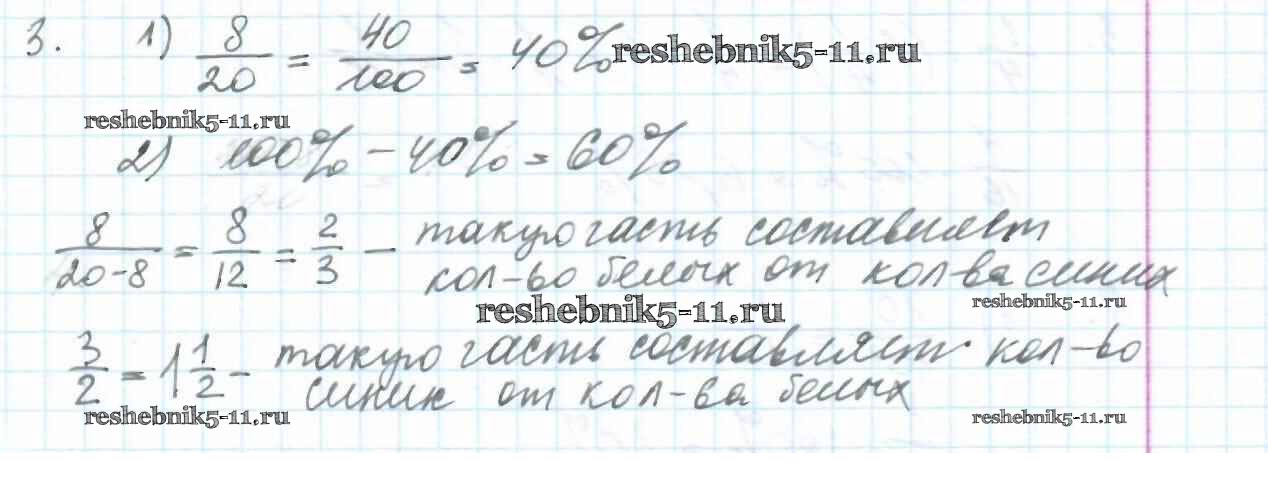 3. 1) 8/20 = 40/100 = 40% reshebnik5-11.ru
reshebnik5-11.ru
2) 100% - 40% = 60%
8/(20-8) = 8/12 = 2/3 - такую часть составляет
кол-во белых от кол-ва синих
reshebnik5-11.ru reshebnik5-11.ru
3/2 = 1 1/2 - такую часть составляет кол-во
синих от кол-ва белых
reshebnik5-11.ru reshebnik5-11.ru